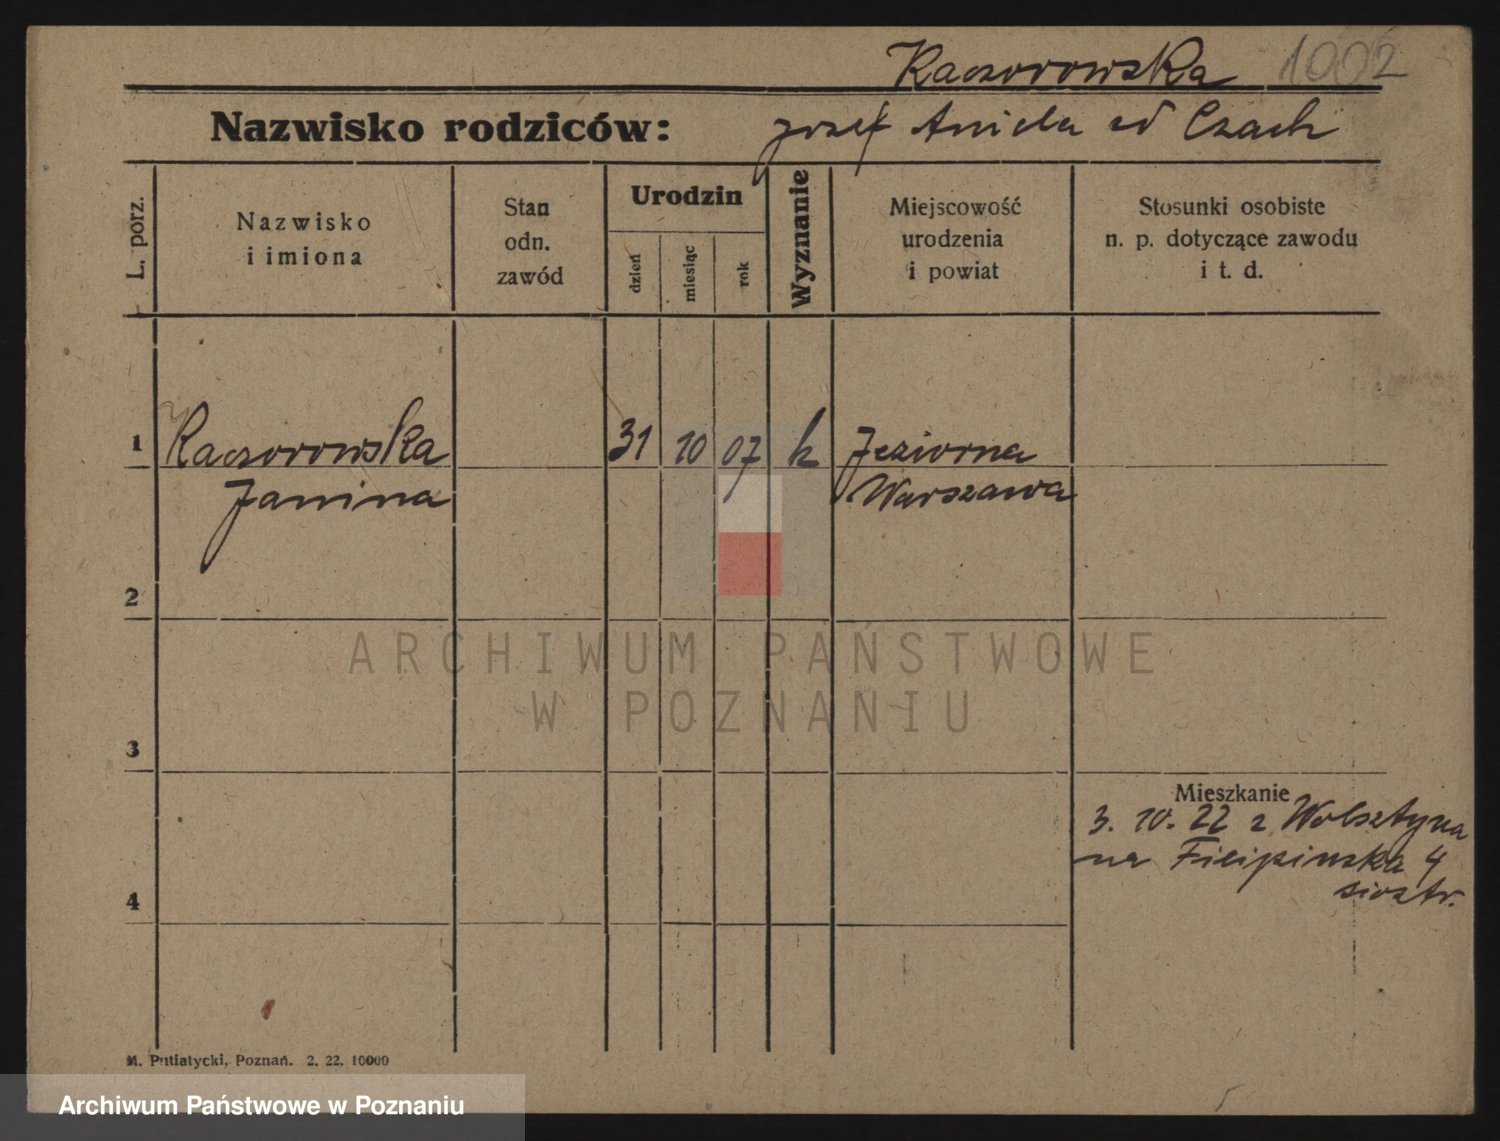 Kaczorowska 1002
Nazwisko rodziców: Józef Aniela od Czach
L. porz.
Nazwisko
i imiona
Stan
odn.
zawód
Urodzin
dzień
miesiąc
rok
Wyznanie
Miejscowość
urodzenia
i powiat
Stosunki osobiste
n. p. dotyczące zawodu
i t. d.
1 Kaczorowska 31 10 07 k Jeziorna
Janina Warszawa
2
ARCHIWUM PAŃSTWOWE
W POZNANIU
3
Mieszkanie
3. 10. 22 z Wolsztyna
na Filipinska 4
siostr.
4
M. Putiatycki, Poznań. 2. 22. 10000
Archiwum Państwowe w Poznaniu